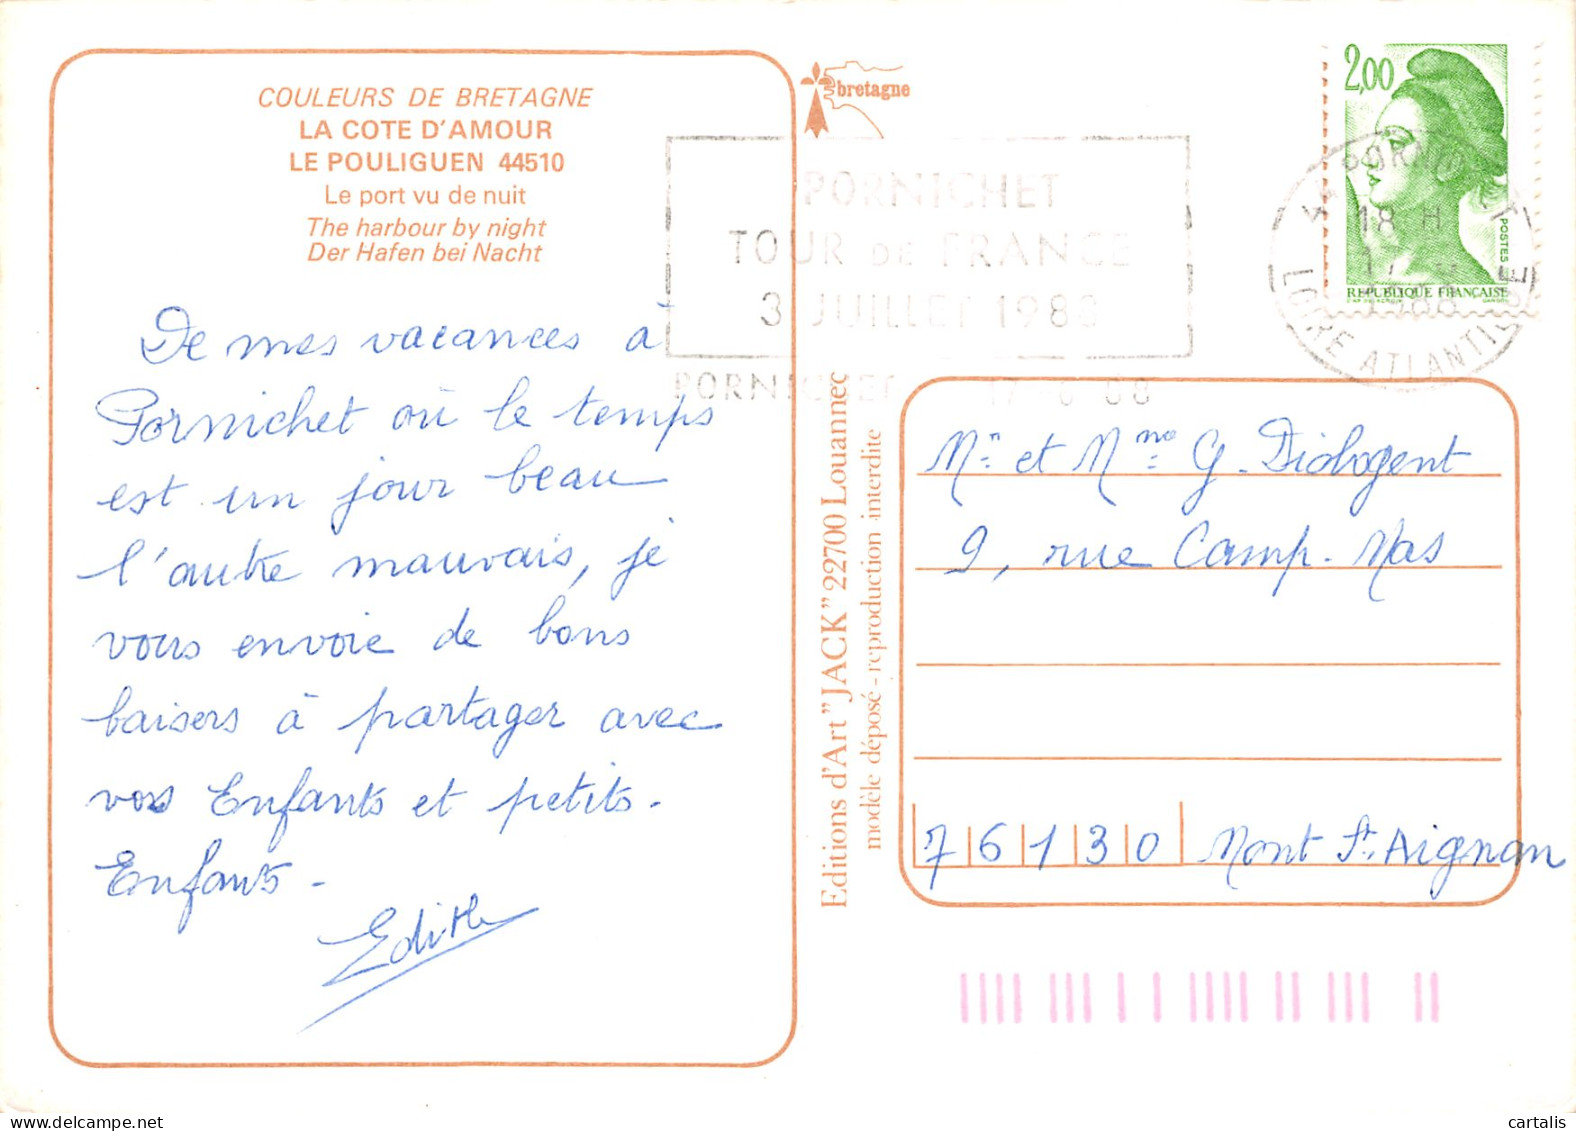 COULEURS DE BRETAGNE
LA COTE D'AMOUR
LE POULIGUEN 44510
Le port vu de nuit
The harbour by night
Der Hafen bei Nacht
De mes vacances à
Pornichet où le temps
est un jour beau
l'autre mauvais, je
vous envoie de bons
baisers à partager avec
vos Enfants et petits-
Enfants.
Edith
bretagne
PORNICHET
TOUR DE FRANCE
3 JUILLET 1988
PORNICHET 17-6 88
Editions d'Art "JACK" 22700 Louannec
modèle déposé - reproduction interdite
2,00
POSTES
REPUBLIQUE FRANÇAISE
44 PORNICHET
18 H
17
LOIRE ATLANTIQUE
Mr et Mme G. Diologent
9, rue Camp-Mas
76130 Mont St Aignan
cartalis